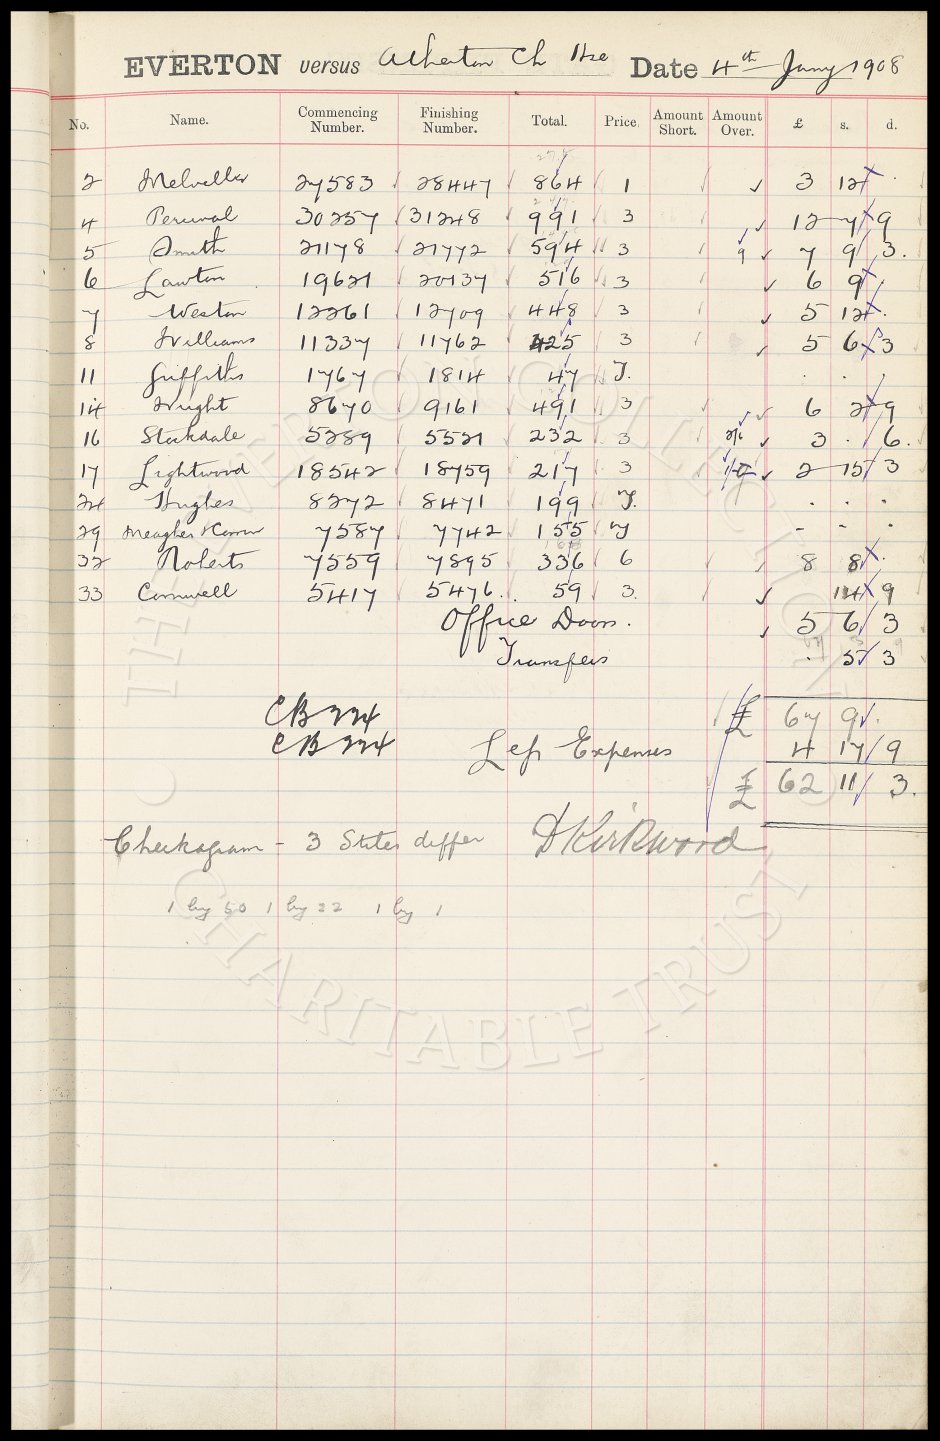 EVERTON versus Atherton Ch Hse Date 4th Jany 1908
No. Name. Commencing Number. Finishing Number. Total. Price. Amount Short. Amount Over. £ s. d.
2 Melveller 27583 28447 864 1 3 12 .
4 Percival 30257 31248 991 3 12 7 9
5 Smith 21178 21772 594 3 9 7 9 3.
6 Lawton 19621 20137 516 3 6 9 .
7 Weston 12261 12709 448 3 5 12 .
8 Williams 11337 11762 425 3 5 6 3
11 Griffiths 1767 1814 47 T. . . .
14 Wright 8670 9161 491 3 6 2 9
16 Stockdale 5289 5521 232 3 2/6 3 . 6.
17 Lightwood 18542 18759 217 3 2 15 3
24 Hughes 8272 8471 199 T. . . .
29 Meagher 7587 7742 155 T - - .
32 Roberts 7559 7895 336 6 8 8 .
33 Cornwell 5417 5476. 59 3. 14 9
Office Doors. 5 6 3
Transfers . 5 3
£ 67 9 .
CB 224
CB 224
Less Expenses 4 17 9
£ 62 11 3.
Checkagram - 3 States differ D Kirkwood
1 by 50 1 by 22 1 by 1
THE EVERTON COLLECTION
CHARITABLE TRUST